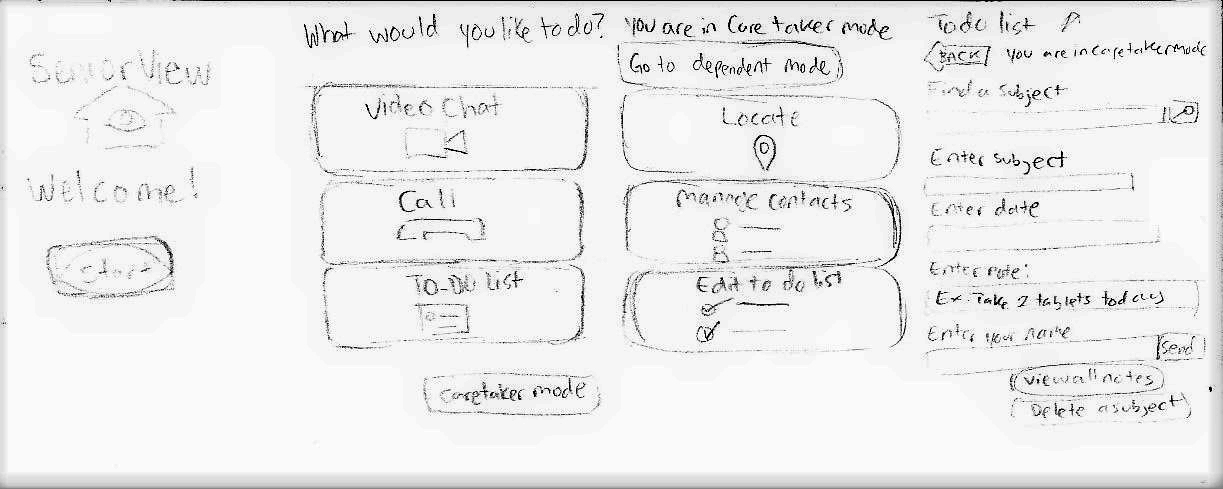 SeniorView
Welcome!
Start
What would you like to do?
Video Chat
Call
TO-DO List
Caretaker mode
You are in Care taker mode
Go to dependent mode
Locate
Manage contacts
Edit to do list
To do list
BACK
You are in caretaker mode
Find a subject
Enter subject
Enter date
Enter note:
Ex. Take 2 tablets today
Enter your name
Send
View all notes
Delete a subject